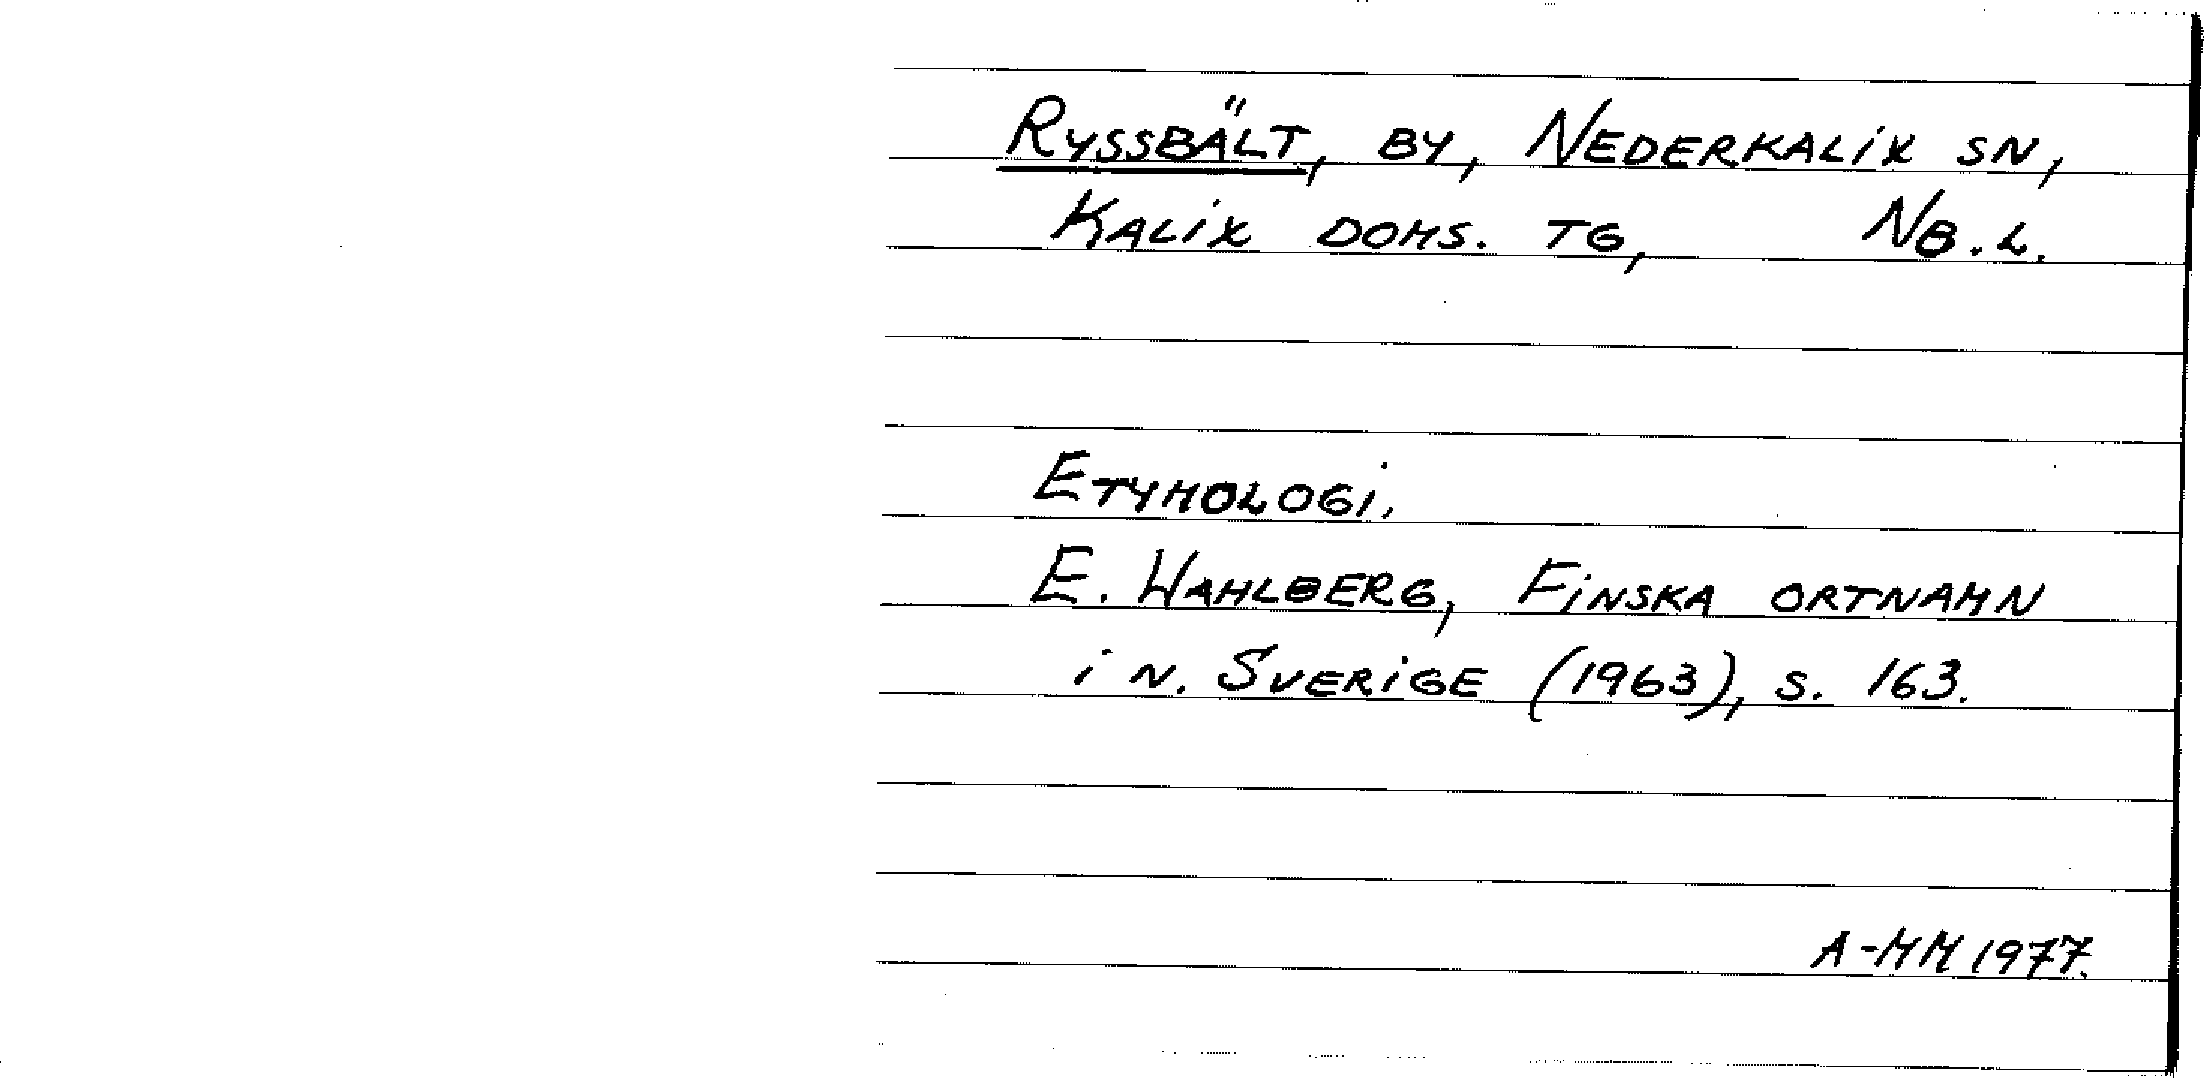 RYSSBÄLT, BY, NEDERKALIX SN,
KALIX DOMS. TG, NB.L.
ETYMOLOGI.
E. WAHLBERG, FINSKA ORTNAMN
i N. SVERIGE (1963), S. 163.
A-MM 1977.